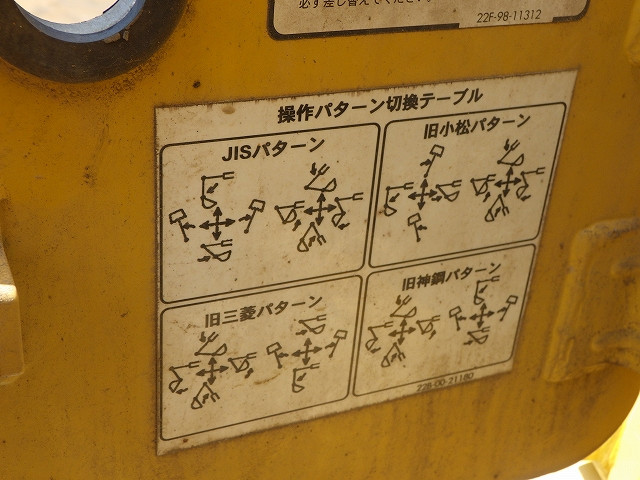 必ず差し替えてください。
22F-98-11312
操作パターン切換テーブル
JISパターン
旧小松パターン
旧三菱パターン
旧神鋼パターン
22B-00-21180